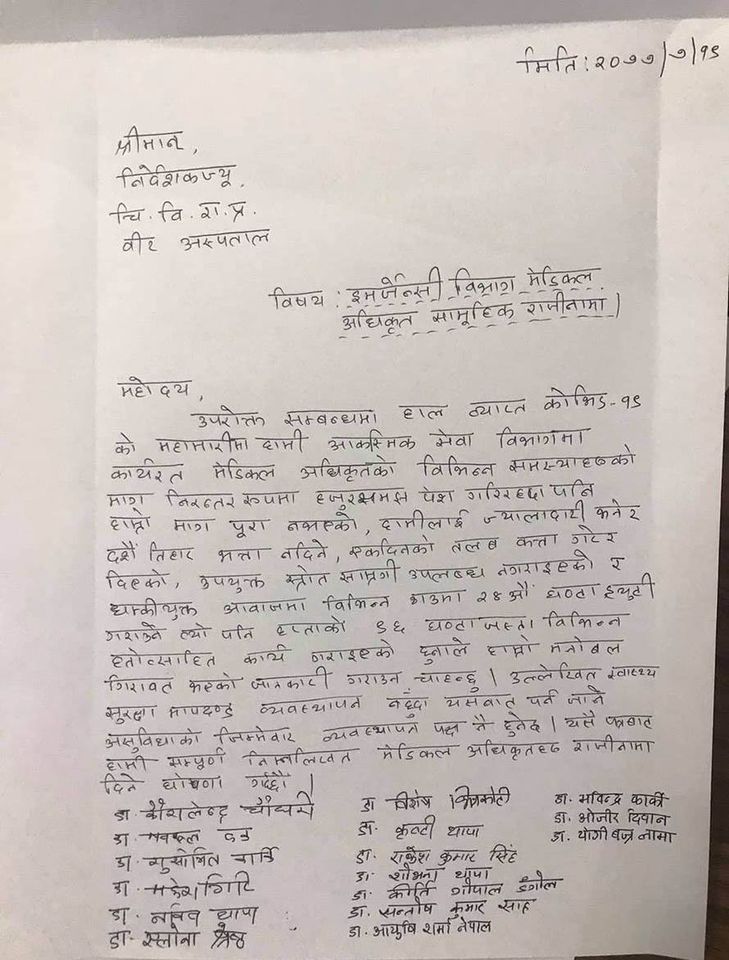 मिति: २०७७/७/१९
श्रीमान्,
निर्देशकज्यू,
चि. वि. रा. प्र.
वीर अस्पताल
विषय : इमर्जेन्सी विभाग मेडिकल
अधिकृत सामूहिक राजीनामा ।
महोदय,
उपरोक्त सम्बन्धमा हाल व्याप्त कोभिड-१९
को महामारीमा हामी आकस्मिक सेवा विभागमा
कार्यरत मेडिकल अधिकृतको विभिन्न समस्याहरुको
माग निरन्तर रुपमा हजुरसमक्ष पेश गरिरहदा पनि
हाम्रो माग पूरा नभएको, हामीलाई ज्यालादारी भनेर
दशैं तिहार भत्ता नदिने, एकदिनको तलब कत्ता गरेर
दिएको, उपयुक्त स्रोत सामग्री उपलब्ध नगराइएको र
धम्कीयुक्त आवाजमा विभिन्न ठाउमा २४ औं घण्टा ड्युटी
गराउने त्यो पनि हप्ताको ९६ घण्टा जस्ता विभिन्न
हतोत्साहित कार्य गराइएको हुनाले हाम्रो मनोबल
गिरावत भएको जानकारी गराउन चाहन्छु । उल्लेखित स्वास्थ्य
सुरक्षा मापदण्ड व्यवस्थापन नहुँदा यसबाट पर्न जाने
असुविधाको जिम्मेवार व्यवस्थापन पक्ष नै हुनेछ । यसै पत्रबाट
हामी सम्पूर्ण निम्नलिखित मेडिकल अधिकृतहरु राजीनामा
दिने घोषणा गर्दछौं ।
डा. चौधरी
डा.
डा. सुशोभित
डा. महेश गिरि
डा. थापा
डा. श्रेष्ठ
डा. विशेष
डा. थापा
डा. राकेश कुमार सिंह
डा. शोभना थापा
डा. कीर्ति गोपाल डंगोल
डा. सन्तोष कुमार साह
डा. आयुषि शर्मा नेपाल
डा. भविन्द्र कार्की
डा. ओजीर दिवान
डा. योगी बज्र लामा